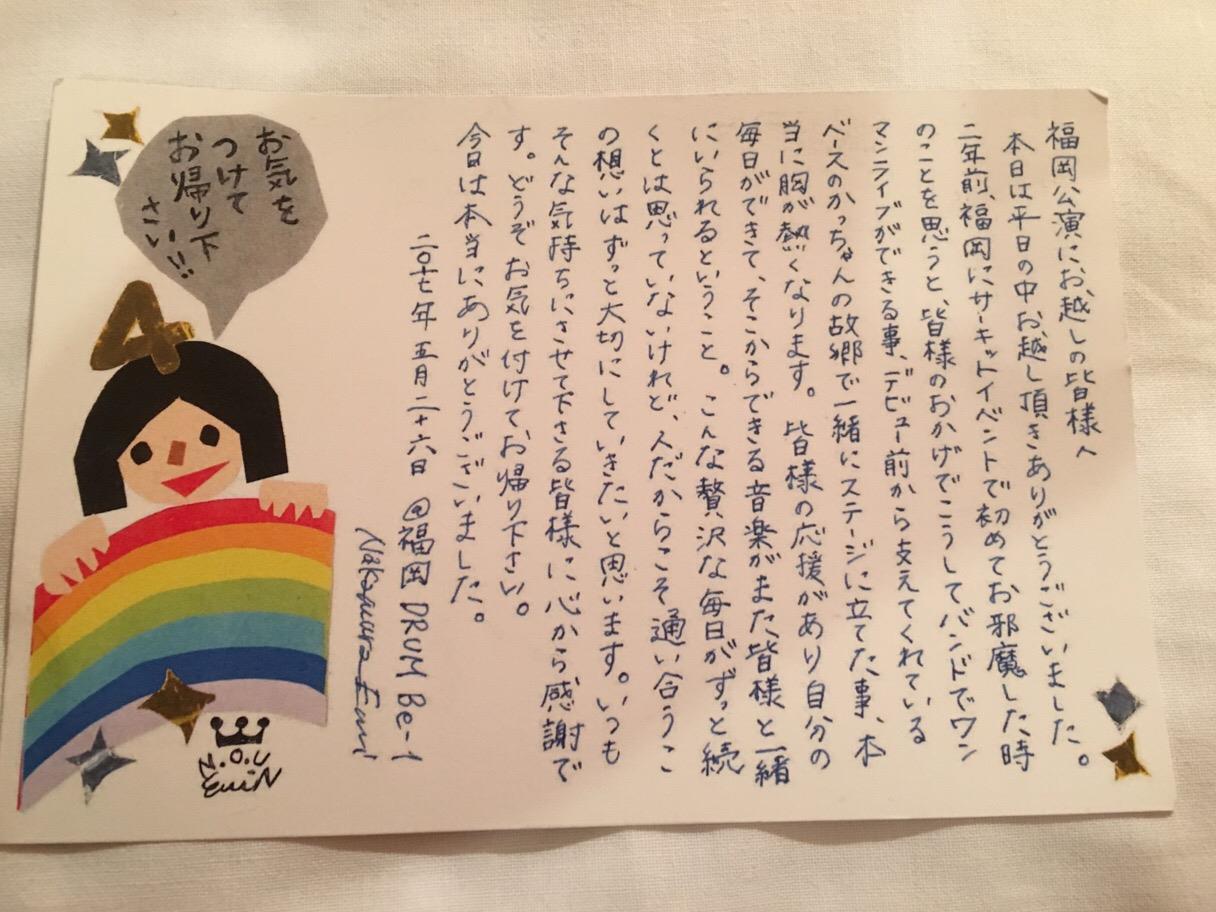 福岡公演にお越しの皆様へ
本日は平日の中お越し頂きありがとうございました。
二年前、福岡にサーキットイベントで初めてお邪魔した時
のことを思うと、皆様のおかげでこうしてバンドでワン
マンライブができる事、デビュー前から支えてくれている
ベースのかっちゃんの故郷で一緒にステージに立てた事、本
当に胸が熱くなります。皆様の応援があり自分の
毎日ができて、そこからできる音楽がまた皆様と一緒
にいられるということ。こんな贅沢な毎日がずっと続
くとは思っていないけれど、人だからこそ通い合うこ
の想いはずっと大切にしていきたいと思います。いつも
そんな気持ちにさせて下さる皆様に心から感謝で
す。どうぞお気を付けてお帰り下さい。
今日は本当にありがとうございました。
二〇十七年五月二十六日 @福岡DRUM Be-1
Nakamura Emi
お気を
つけて
お帰り下
さい!!
4
N.O.U
EMiN